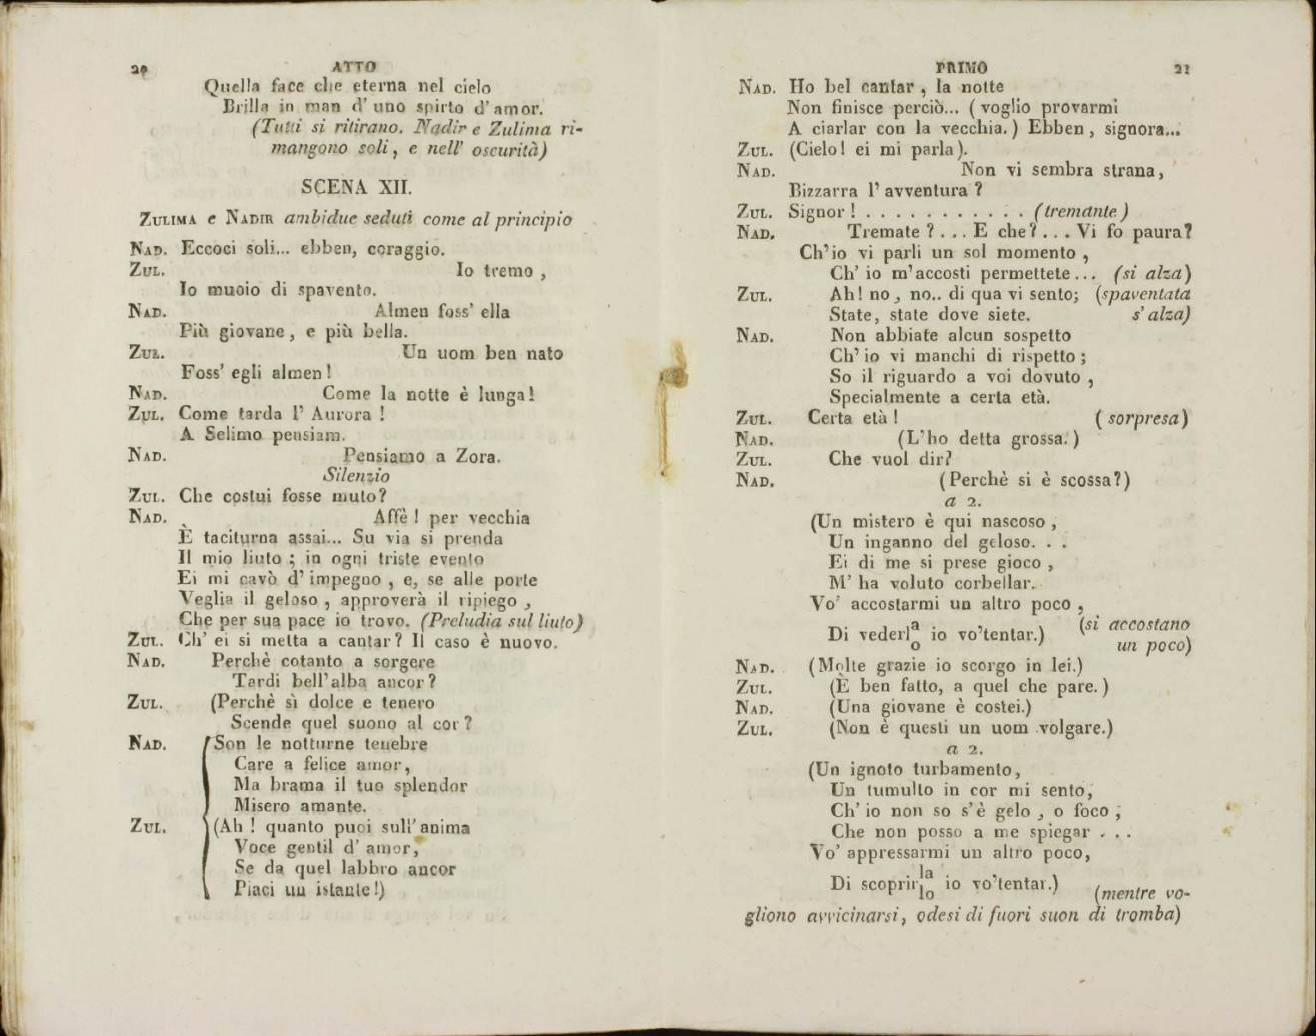 20 ATTO
Quella face che eterna nel cielo
Brilla in man d'uno spirto d'amor.
(Tutti si ritirano. Nadir e Zulima ri-
mangono soli, e nell' oscurità)
SCENA XII.
ZULIMA e NADIR ambidue seduti come al principio
NAD. Eccoci soli... ebben, coraggio.
ZUL. Io tremo,
Io muoio di spavento.
NAD. Almen foss' ella
Più giovane, e più bella.
ZUL. Un uom ben nato
Foss' egli almen!
NAD. Come la notte è lunga!
ZUL. Come tarda l' Aurora!
A Selimo pensiam.
NAD. Pensiamo a Zora.
Silenzio
ZUL. Che costui fosse muto?
NAD. Affè! per vecchia
È taciturna assai... Su via si prenda
Il mio liuto; in ogni triste evento
Ei mi cavò d' impegno, e, se alle porte
Veglia il geloso, approverà il ripiego,
Che per sua pace io trovo. (Preludia sul liuto)
ZUL. Ch' ei si metta a cantar? Il caso è nuovo.
NAD. Perchè cotanto a sorgere
Tardi bell'alba ancor?
ZUL. (Perchè sì dolce e tenero
Scende quel suono al cor?
NAD. Son le notturne tenebre
Care a felice amor,
Ma brama il tuo splendor
Misero amante.
ZUL. (Ah! quanto puoi sull'anima
Voce gentil d' amor,
Se da quel labbro ancor
Piaci un istante!)
PRIMO 21
NAD. Ho bel cantar, la notte
Non finisce perciò... (voglio provarmi
A ciarlar con la vecchia.) Ebben, signora...
ZUL. (Cielo! ei mi parla).
NAD. Non vi sembra strana,
Bizzarra l' avventura?
ZUL. Signor! . . . . . . . . . . . (tremante)
NAD. Tremate?... E che?... Vi fo paura?
Ch'io vi parli un sol momento,
Ch' io m'accosti permettete... (si alza)
ZUL. Ah! no, no.. di qua vi sento; (spaventata
State, state dove siete. s'alza)
NAD. Non abbiate alcun sospetto
Ch' io vi manchi di rispetto;
So il riguardo a voi dovuto,
Specialmente a certa età.
ZUL. Certa età! (sorpresa)
NAD. (L'ho detta grossa.)
ZUL. Che vuol dir?
NAD. (Perchè si è scossa?)
a 2.
(Un mistero è qui nascoso,
Un inganno del geloso. . .
Ei di me si prese gioco,
M' ha voluto corbellar.
Vo' accostarmi un altro poco,
(si accostano
Di vederl a/o io vo'tentar.) un poco)
NAD. (Molte grazie io scorgo in lei.)
ZUL. (È ben fatto, a quel che pare.)
NAD. (Una giovane è costei.)
ZUL. (Non è questi un uom volgare.)
a 2.
(Un ignoto turbamento,
Un tumulto in cor mi sento,
Ch' io non so s'è gelo, o foco,
Che non posso a me spiegar . . .
Vo' appressarmi un altro poco,
Di scoprir la/lo io vo'tentar.) (mentre vo-
gliono avvicinarsi, odesi di fuori suon di tromba)